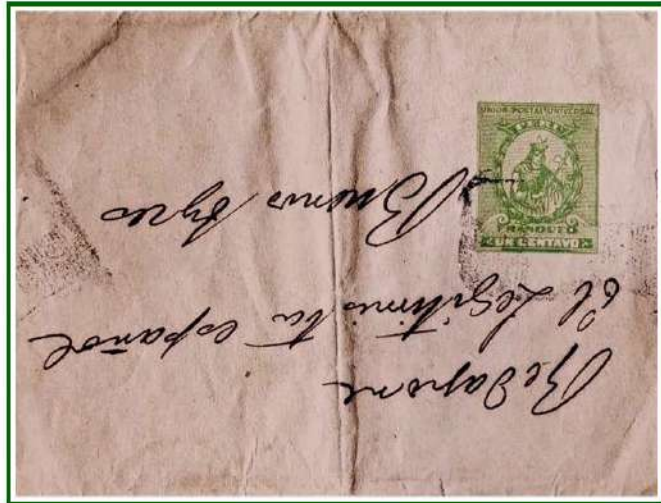 UNION POSTAL UNIVERSAL
PERU
FRANQUEO
UN CENTAVO
el Legitimista español
Buenos Ayres